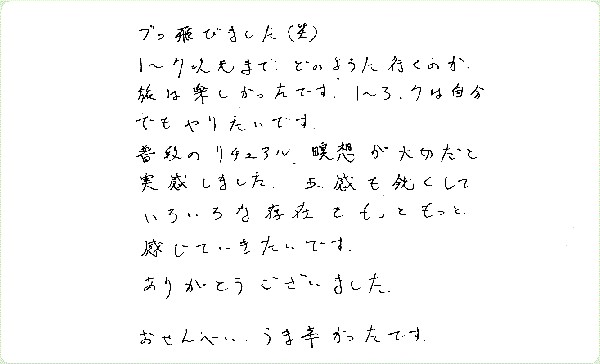 ブッ飛びました(笑)
1〜7次元まで、どのように行くのか、
旅は楽しかったです。1〜3、7は自分
でもやりたいです。
普段のリチュアル、瞑想が大切だと
実感しました。五感も鋭くして
いろいろな存在をもっともっと
感じていきたいです。
ありがとうございました。
おせんべい、うま辛かったです。